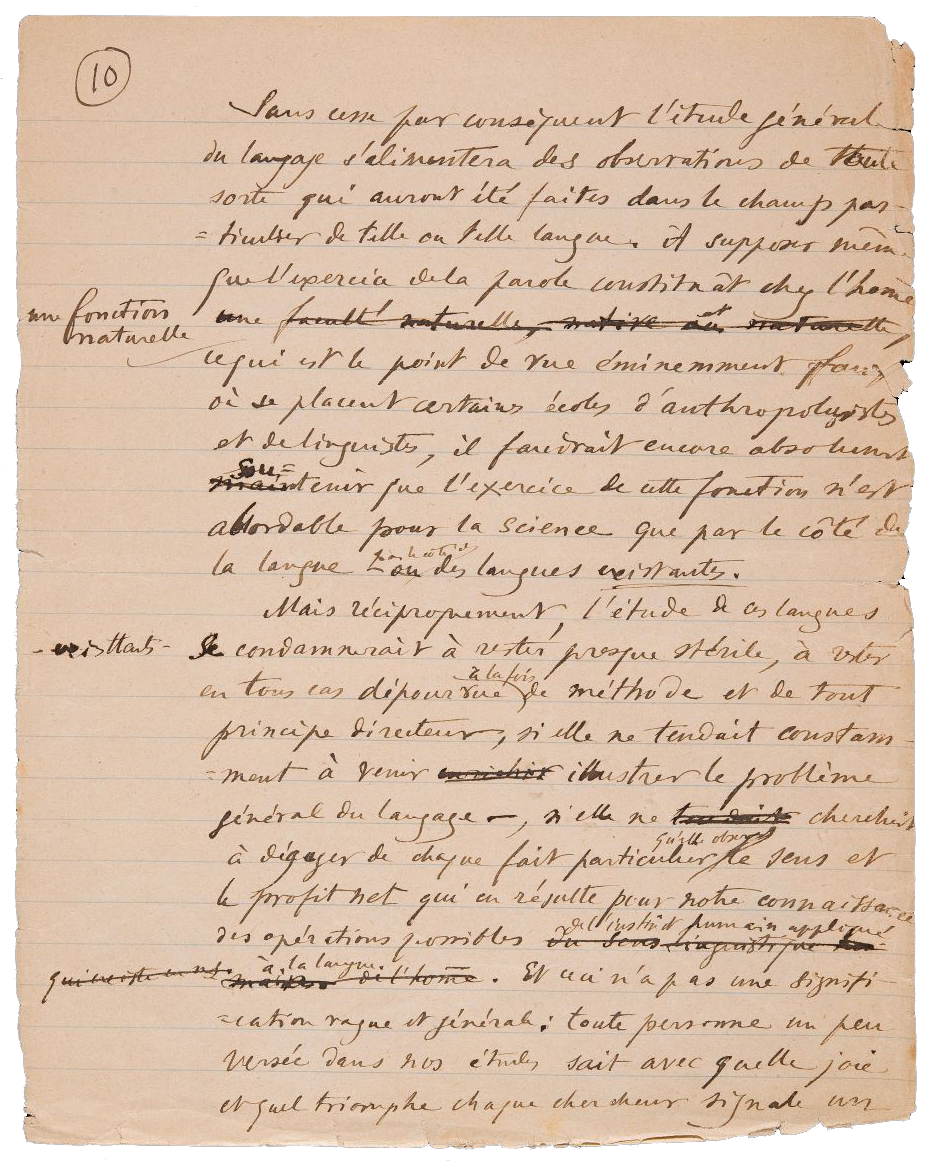 10
Sans cesse par conséquent l'étude générale
du langage s'alimentera des observations de toute
sorte qui auront été faites dans le champ par-
=ticulier de telle ou telle langue. À supposer même
que l'exercice de la parole constituât chez l'home
une fonction
naturelle
une faculté naturelle, native et naturelle,
ce qui est le point de vue éminemment faux
où se placent certaines écoles d'anthropologistes
et de linguistes, il faudrait encore absolument
sou=
maintenir que l'exercice de cette fonction n'est
abordable pour la science que par le côté de
la langue ou par le côté des langues existantes.
Mais réciproquement, l'étude de ces langues
- existantes - Se condamnerait à rester presque stérile, à rester
à la fois
en tous cas dépourvue de méthode et de tout
principe directeur, si elle ne tendait constam-
=ment à venir enrichir illustrer le problème
général du langage –, si elle ne tendait cherchait
qu'elle observe
à dégager de chaque fait particulier le sens et
le profit net qui en résulte pour notre connaissance
de l'instinct humain appliqué
des opérations possibles du sens linguistique
à la langue.
qui existe en nos de l'home. Et ceci n'a pas une signifi-
=cation vague et générale: toute personne un peu
versée dans nos études sait avec quelle joie
et quel triomphe chaque chercheur signale un